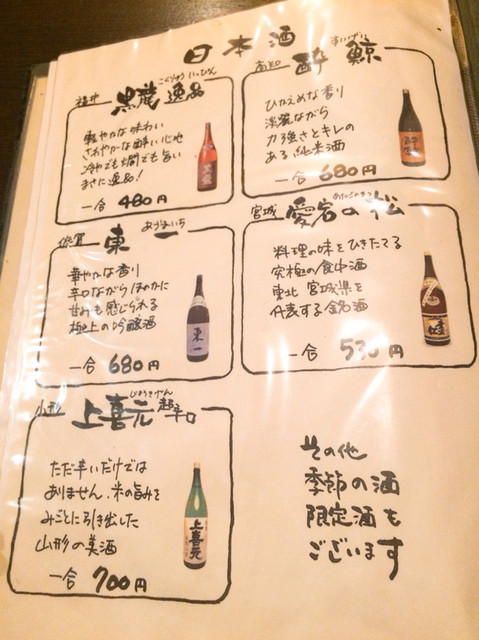 日本酒
福井
こくりゅう いっぴん
黒龍 逸品
軽やかな味わい
さわやかな酔い心地
冷やでも燗でも旨い
まさに逸品!
一合 480円
高知
すいげい
酔鯨
ひかえめな香り
淡麗ながら
力強さとキレの
ある純米酒
一合 680円
佐賀
あづまいち
東一
華やかな香り
辛口ながらほのかに
甘みも感じられる
極上の吟醸酒
一合 680円
東一
宮城
あたごのまつ
愛宕の松
料理の味をひきたてる
究極の食中酒
東北 宮城県を
代表する銘酒
一合 530円
山形
じょうきげん
上喜元 超辛口
ただ辛いだけでは
ありません、米の旨みを
みごとに引き出した
山形の美酒
一合 700円
上喜元
その他
季節の酒
限定酒も
ございます